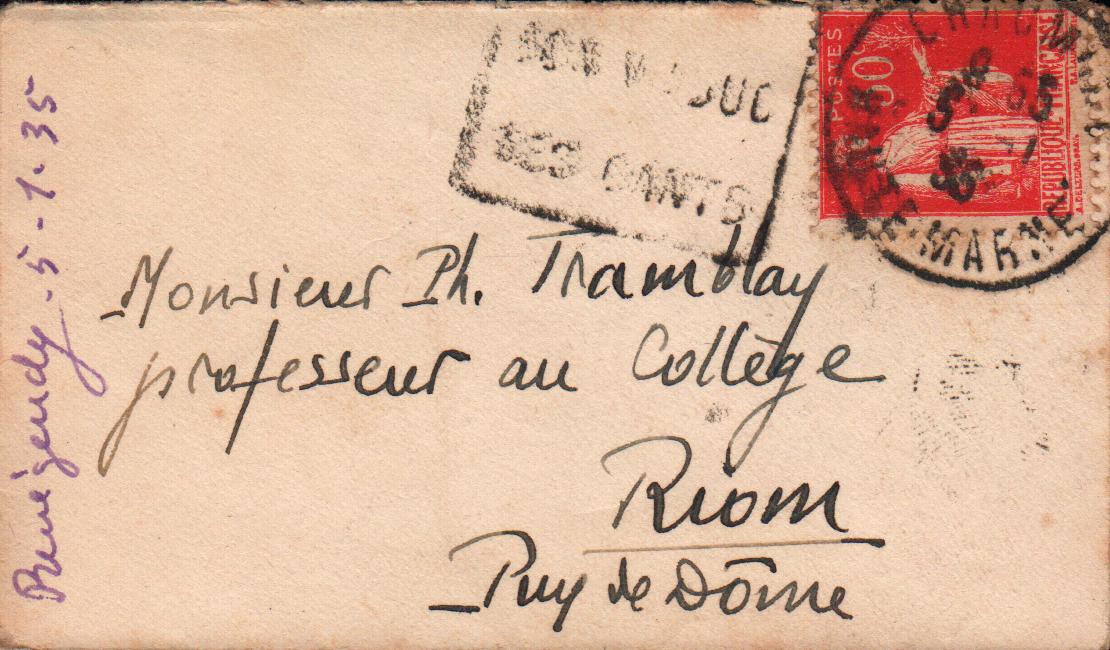 SON VIADUC
SES GANTS
POSTES
50c
REPUBLIQUE FRANCAISE
CHAUM
MARNE
5 - 1 - 35
Monsieur Ph. Tramblay
professeur au Collège
Riom
Puy de Dôme